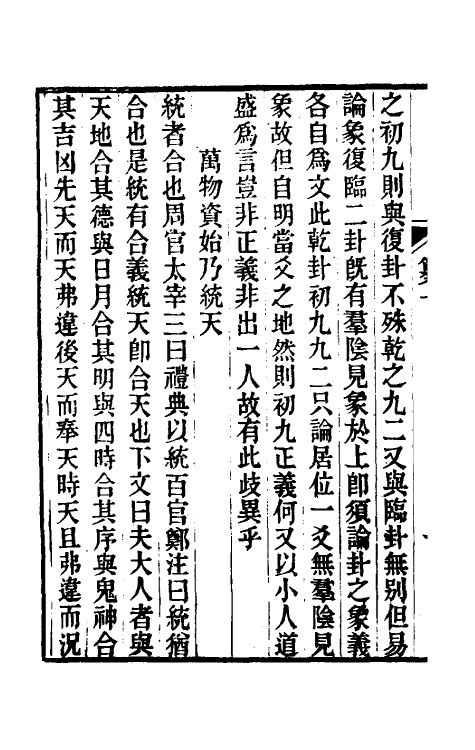 之初九則與復卦不殊乾之九二又與臨卦無别但易
論象復臨二卦旣有羣陰見象於上卽須論卦之象義
各自爲文此乾卦初九九二只論居位一爻無羣陰見
象故但自明當爻之地然則初九正義何又以小人道
盛爲言豈非正義非出一人故有此歧異乎
萬物資始乃統天
統者合也周官太宰三曰禮典以統百官鄭注曰統猶
合也是統有合義統天卽合天也下文曰夫大人者與
天地合其德與日月合其明與四時合其序與鬼神合
其吉凶先天而天弗違後天而奉天時天且弗違而況